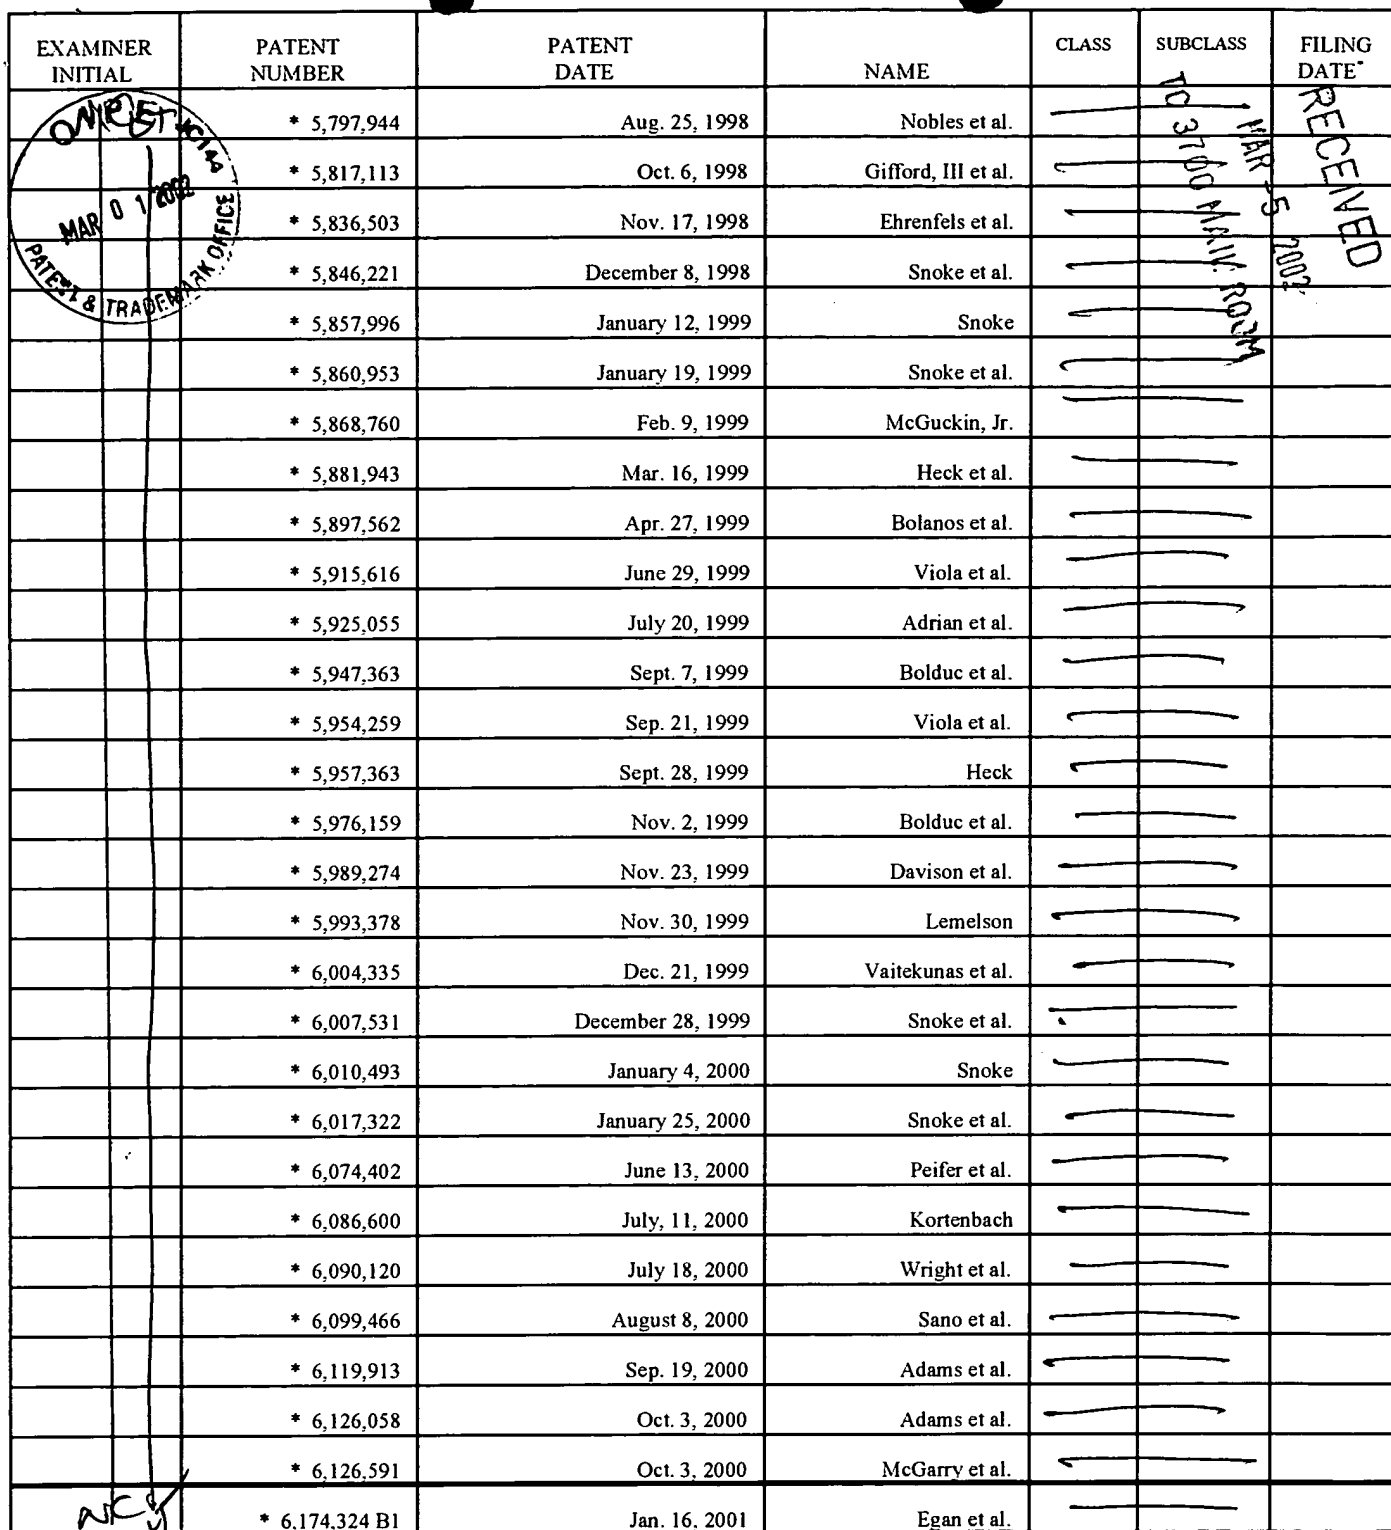 EXAMINER INITIAL PATENT NUMBER PATENT DATE NAME CLASS SUBCLASS FILING DATE*
* 5,797,944 Aug. 25, 1998 Nobles et al.
* 5,817,113 Oct. 6, 1998 Gifford, III et al.
* 5,836,503 Nov. 17, 1998 Ehrenfels et al.
* 5,846,221 December 8, 1998 Snoke et al.
* 5,857,996 January 12, 1999 Snoke
* 5,860,953 January 19, 1999 Snoke et al.
* 5,868,760 Feb. 9, 1999 McGuckin, Jr.
* 5,881,943 Mar. 16, 1999 Heck et al.
* 5,897,562 Apr. 27, 1999 Bolanos et al.
* 5,915,616 June 29, 1999 Viola et al.
* 5,925,055 July 20, 1999 Adrian et al.
* 5,947,363 Sept. 7, 1999 Bolduc et al.
* 5,954,259 Sep. 21, 1999 Viola et al.
* 5,957,363 Sept. 28, 1999 Heck
* 5,976,159 Nov. 2, 1999 Bolduc et al.
* 5,989,274 Nov. 23, 1999 Davison et al.
* 5,993,378 Nov. 30, 1999 Lemelson
* 6,004,335 Dec. 21, 1999 Vaitekunas et al.
* 6,007,531 December 28, 1999 Snoke et al.
* 6,010,493 January 4, 2000 Snoke
* 6,017,322 January 25, 2000 Snoke et al.
* 6,074,402 June 13, 2000 Peifer et al.
* 6,086,600 July, 11, 2000 Kortenbach
* 6,090,120 July 18, 2000 Wright et al.
* 6,099,466 August 8, 2000 Sano et al.
* 6,119,913 Sep. 19, 2000 Adams et al.
* 6,126,058 Oct. 3, 2000 Adams et al.
* 6,126,591 Oct. 3, 2000 McGarry et al.
* 6,174,324 B1 Jan. 16, 2001 Egan et al.
MAR 0 1 2002
PATENT & TRADEMARK OFFICE
RECEIVED
MAR -5 2002
TC 3700 MAIL ROOM